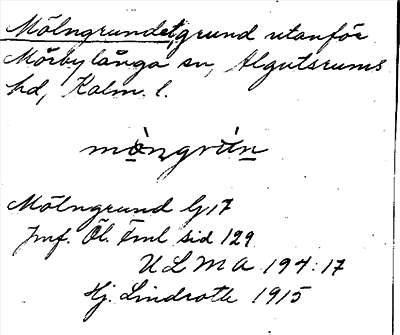 Mölngrundet, grund utanför
Mörbylånga sn, Algutsrums
hd, Kalm. l.
Mölngrund G17
Jmf. Öl. Fml sid 129
ULMA 194:17
Hj. Lindroth 1915